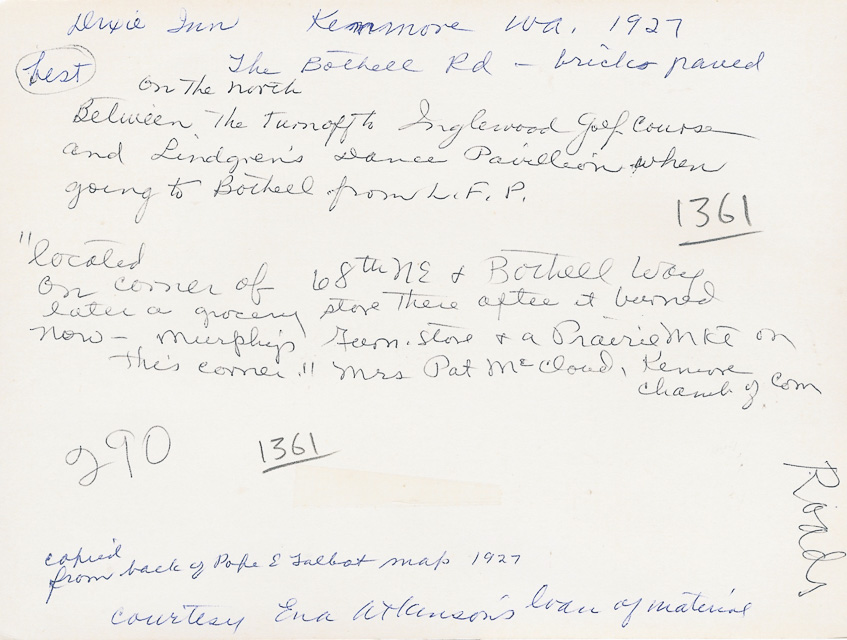 Dixie Inn Kenmore Wa. 1927
best
The Bothell Rd - bricks paved
on the north
Between The turnoff to Inglewood Golf Course
and Lindgren's Dance Pavilleion when
going to Bothell from L.F.P.
1361
"located
on corner of 68th NE & Bothell Way
later a grocery store there after it burned
now - Murphy's Furn. store & a Prairie Mkt on
this corner." Mrs Pat McCloud, Kenmore
Chamb of Com
290 1361
Roads
copied
from back of Pope & Talbot map 1927
courtesy Ena Atkinson's loan of material